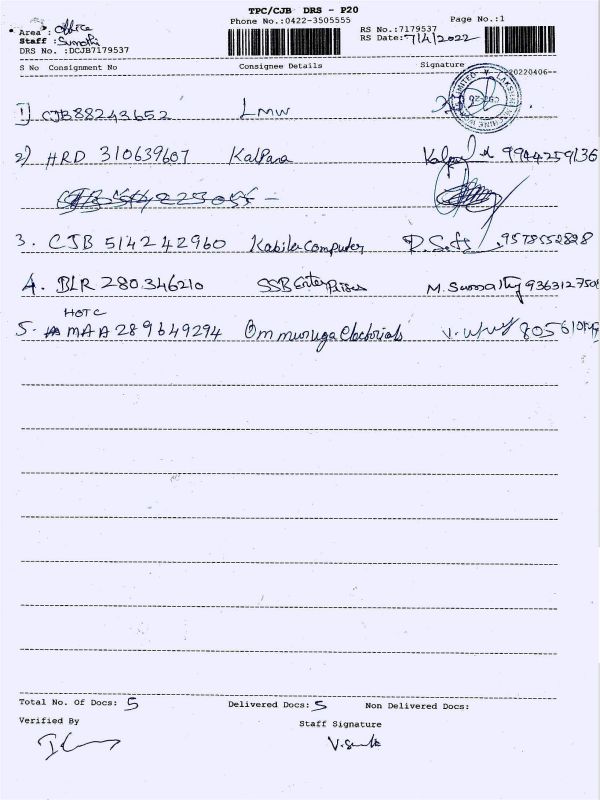 TPC/CJB DRS - P20
Phone No.:0422-3505555
Page No.:1
Area : Office
Staff : Sumathi
DRS No. :DCJB7179537
RS No.:7179537
RS Date:7/4/2022
S No Consignment No Consignee Details Signature
20220406--
1) CJB88243652 LMW
2) HRD 310639607 Kalpana 9944259136
3. CJB 514242960 Kabila Computer 9578552828
4. BLR 280346210 SSB Enter Prises M. Sumathy 936312750
HOTC
5. MAA 289649294 Om muruga Electricals
Total No. Of Docs: 5 Delivered Docs: 5 Non Delivered Docs:
Verified By Staff Signature